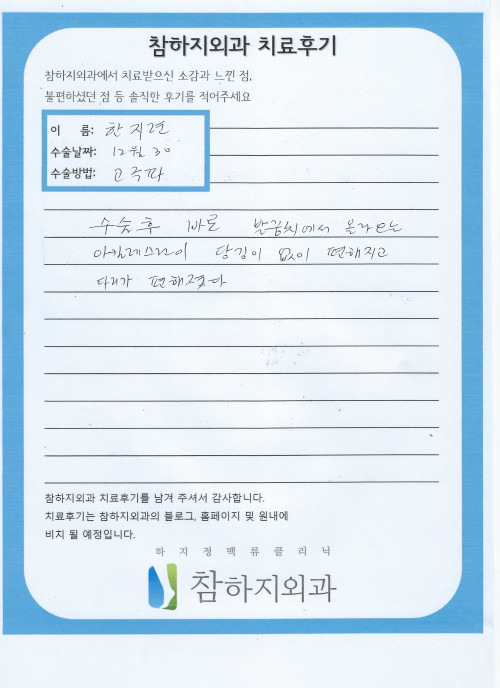 참하지외과 치료후기
참하지외과에서 치료받으신 소감과 느낀 점,
불편하셨던 점 등 솔직한 후기를 적어주세요
이 름: 한지연
수술날짜: 12월 30
수술방법: 고주파
수술후 바로 발끔치에서 올라오는
아킬레스라이 당김이 없이 편해지고
다리가 편해졌다
참하지외과 치료후기를 남겨 주셔서 감사합니다.
치료후기는 참하지외과의 블로그, 홈페이지 및 원내에
비치 될 예정입니다.
하지정맥류클리닉
참하지외과